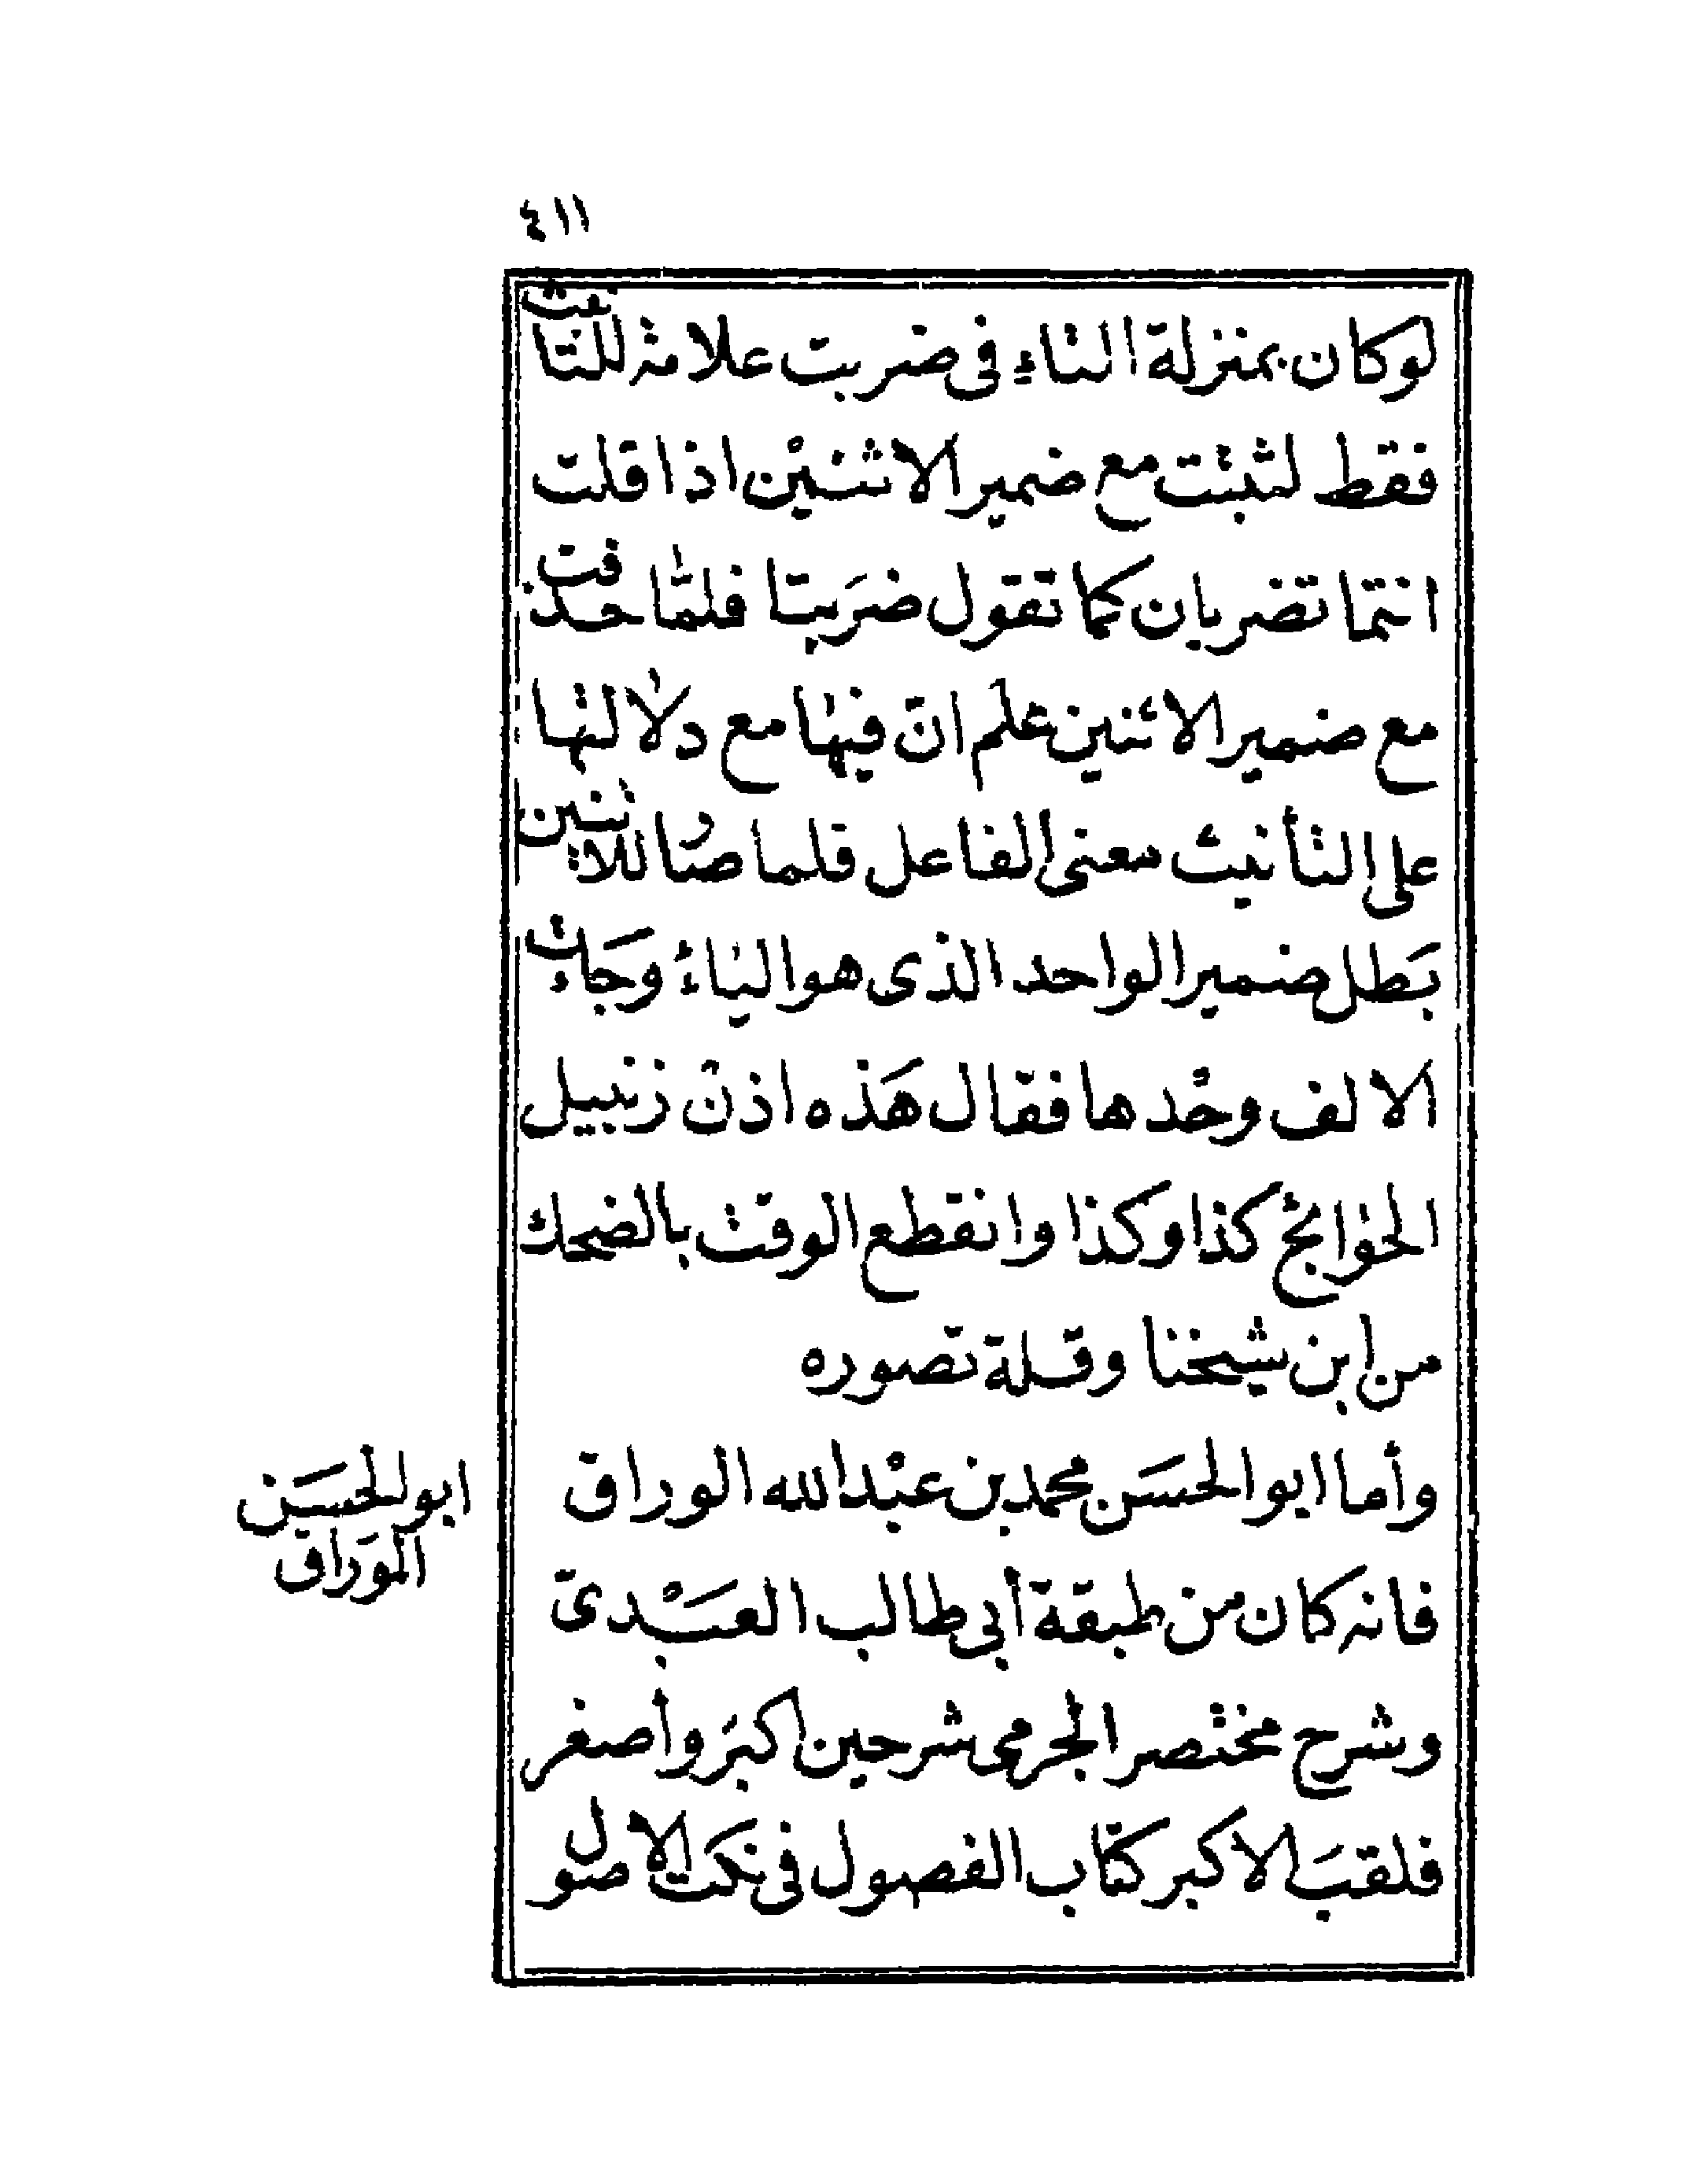 ٤١١
لوكان بمنزلة التاءِ فى ضربت علامة للتانيث
فقط لثبتت مع ضمير الاثنيْن اذا قلت
انتما تضربان كما تقول ضرَبتا فلمّا حذفت
مع ضمير الاثنين علم انّ فيها مع دلالتها
على التأنيث معنى الفاعل فلما صار للاثنين
بَطل ضمير الواحد الذى هو الياءُ وجَاءت
الالف وحْدها فقال هَذه اذنْ زنبيل
الحوائج كذا وكذا وانقطع الوقت بالضحك
من ابن شيخنا وقلة تصوره
وأما ابو الحسَن محمد بن عبْد الله الوراق
ابو الحسَين
الوَراق
فانه كان من طبقة أبي طالب العبْدىّ
وشرح مختصر الجرمى شرحين اكبَر وأصغر
فلقبَ الاكبر كتاب الفصول فى نكت الاصول